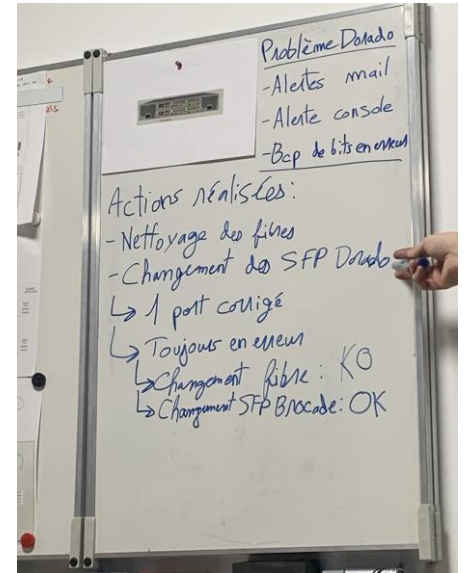 Problème Dorado
- Alertes mail
- Alerte console
- Bcp de bits en erreur
Actions réalisées:
- Nettoyage des fibres
- Changement des SFP Dorado
↳ 1 port corrigé
↳ Toujours en erreur
↳ Changement fibre : KO
↳ Changement SFP Brocade : OK